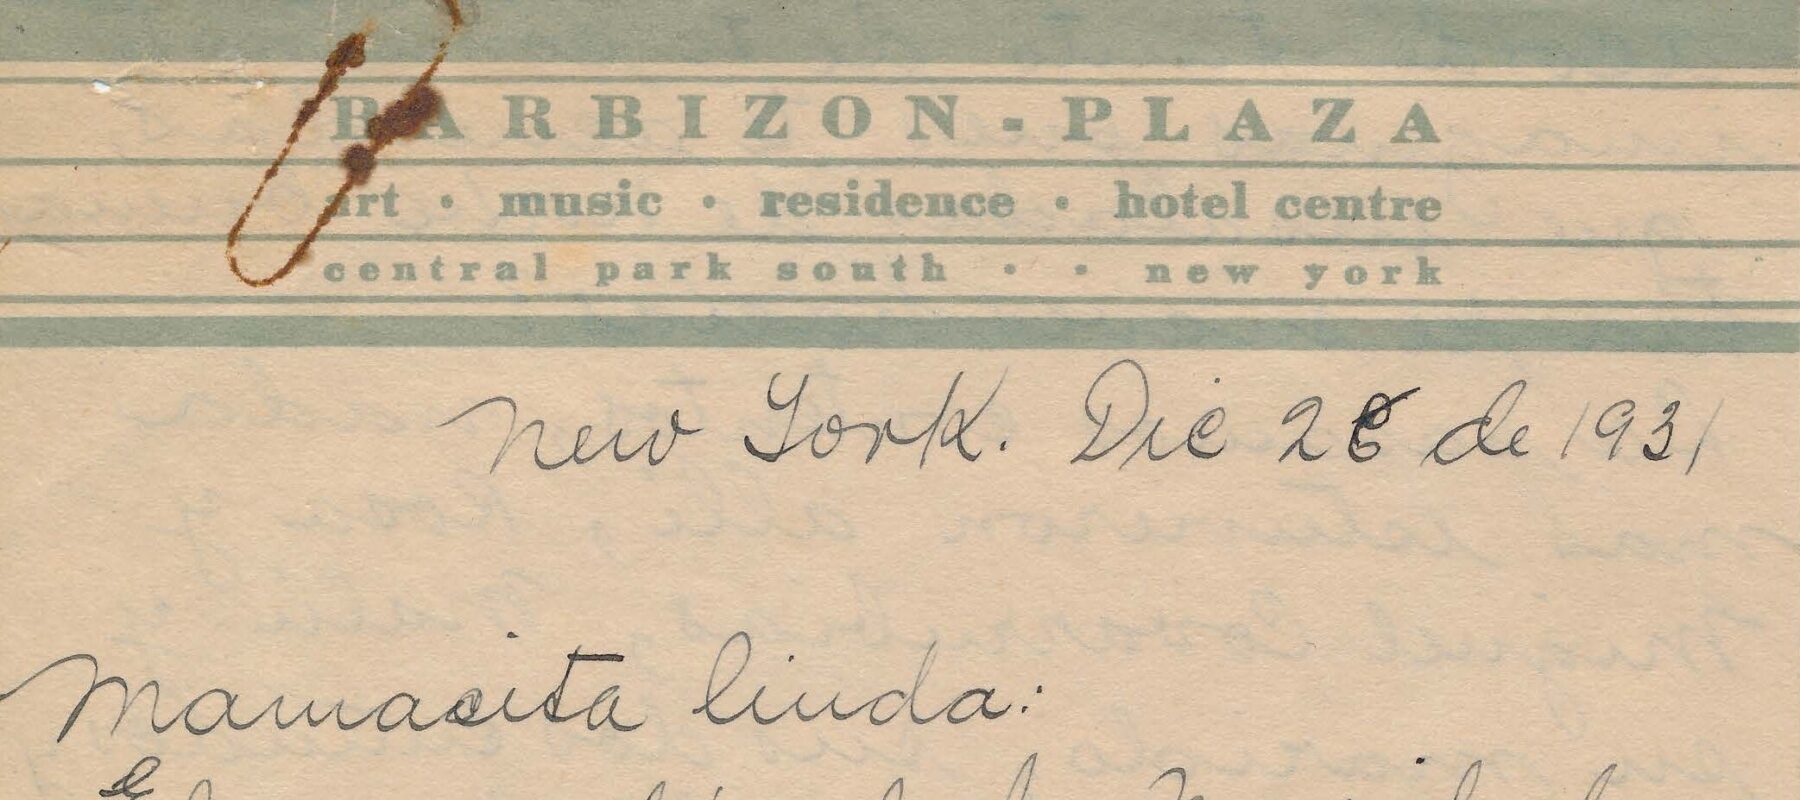 BARBIZON-PLAZA
art • music • residence • hotel centre
central park south • • new york
New York. Dic 26 de 1931
Mamacita linda: